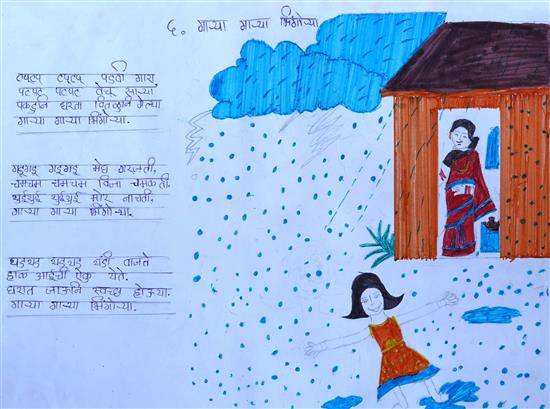 ६. गाऱ्या गाऱ्या भिंगोऱ्या
टपटप टपटप पडती गारा,
पटपट पटपट वेचू साऱ्या
पकडुनि धरता वितळुनि गेल्या
गाऱ्या गाऱ्या भिंगोऱ्या.
गडगड गडगड मेघ गरजती,
चमचम चमचम विजा चमकती.
थुईथुई थुईथुई मोर नाचती,
गाऱ्या गाऱ्या भिंगोऱ्या.
थडथड थडथड थंडी वाजते
हाक आईची ऐकू येते.
घरात जाऊनि स्वच्छ होऊया.
गाऱ्या गाऱ्या भिंगोऱ्या.